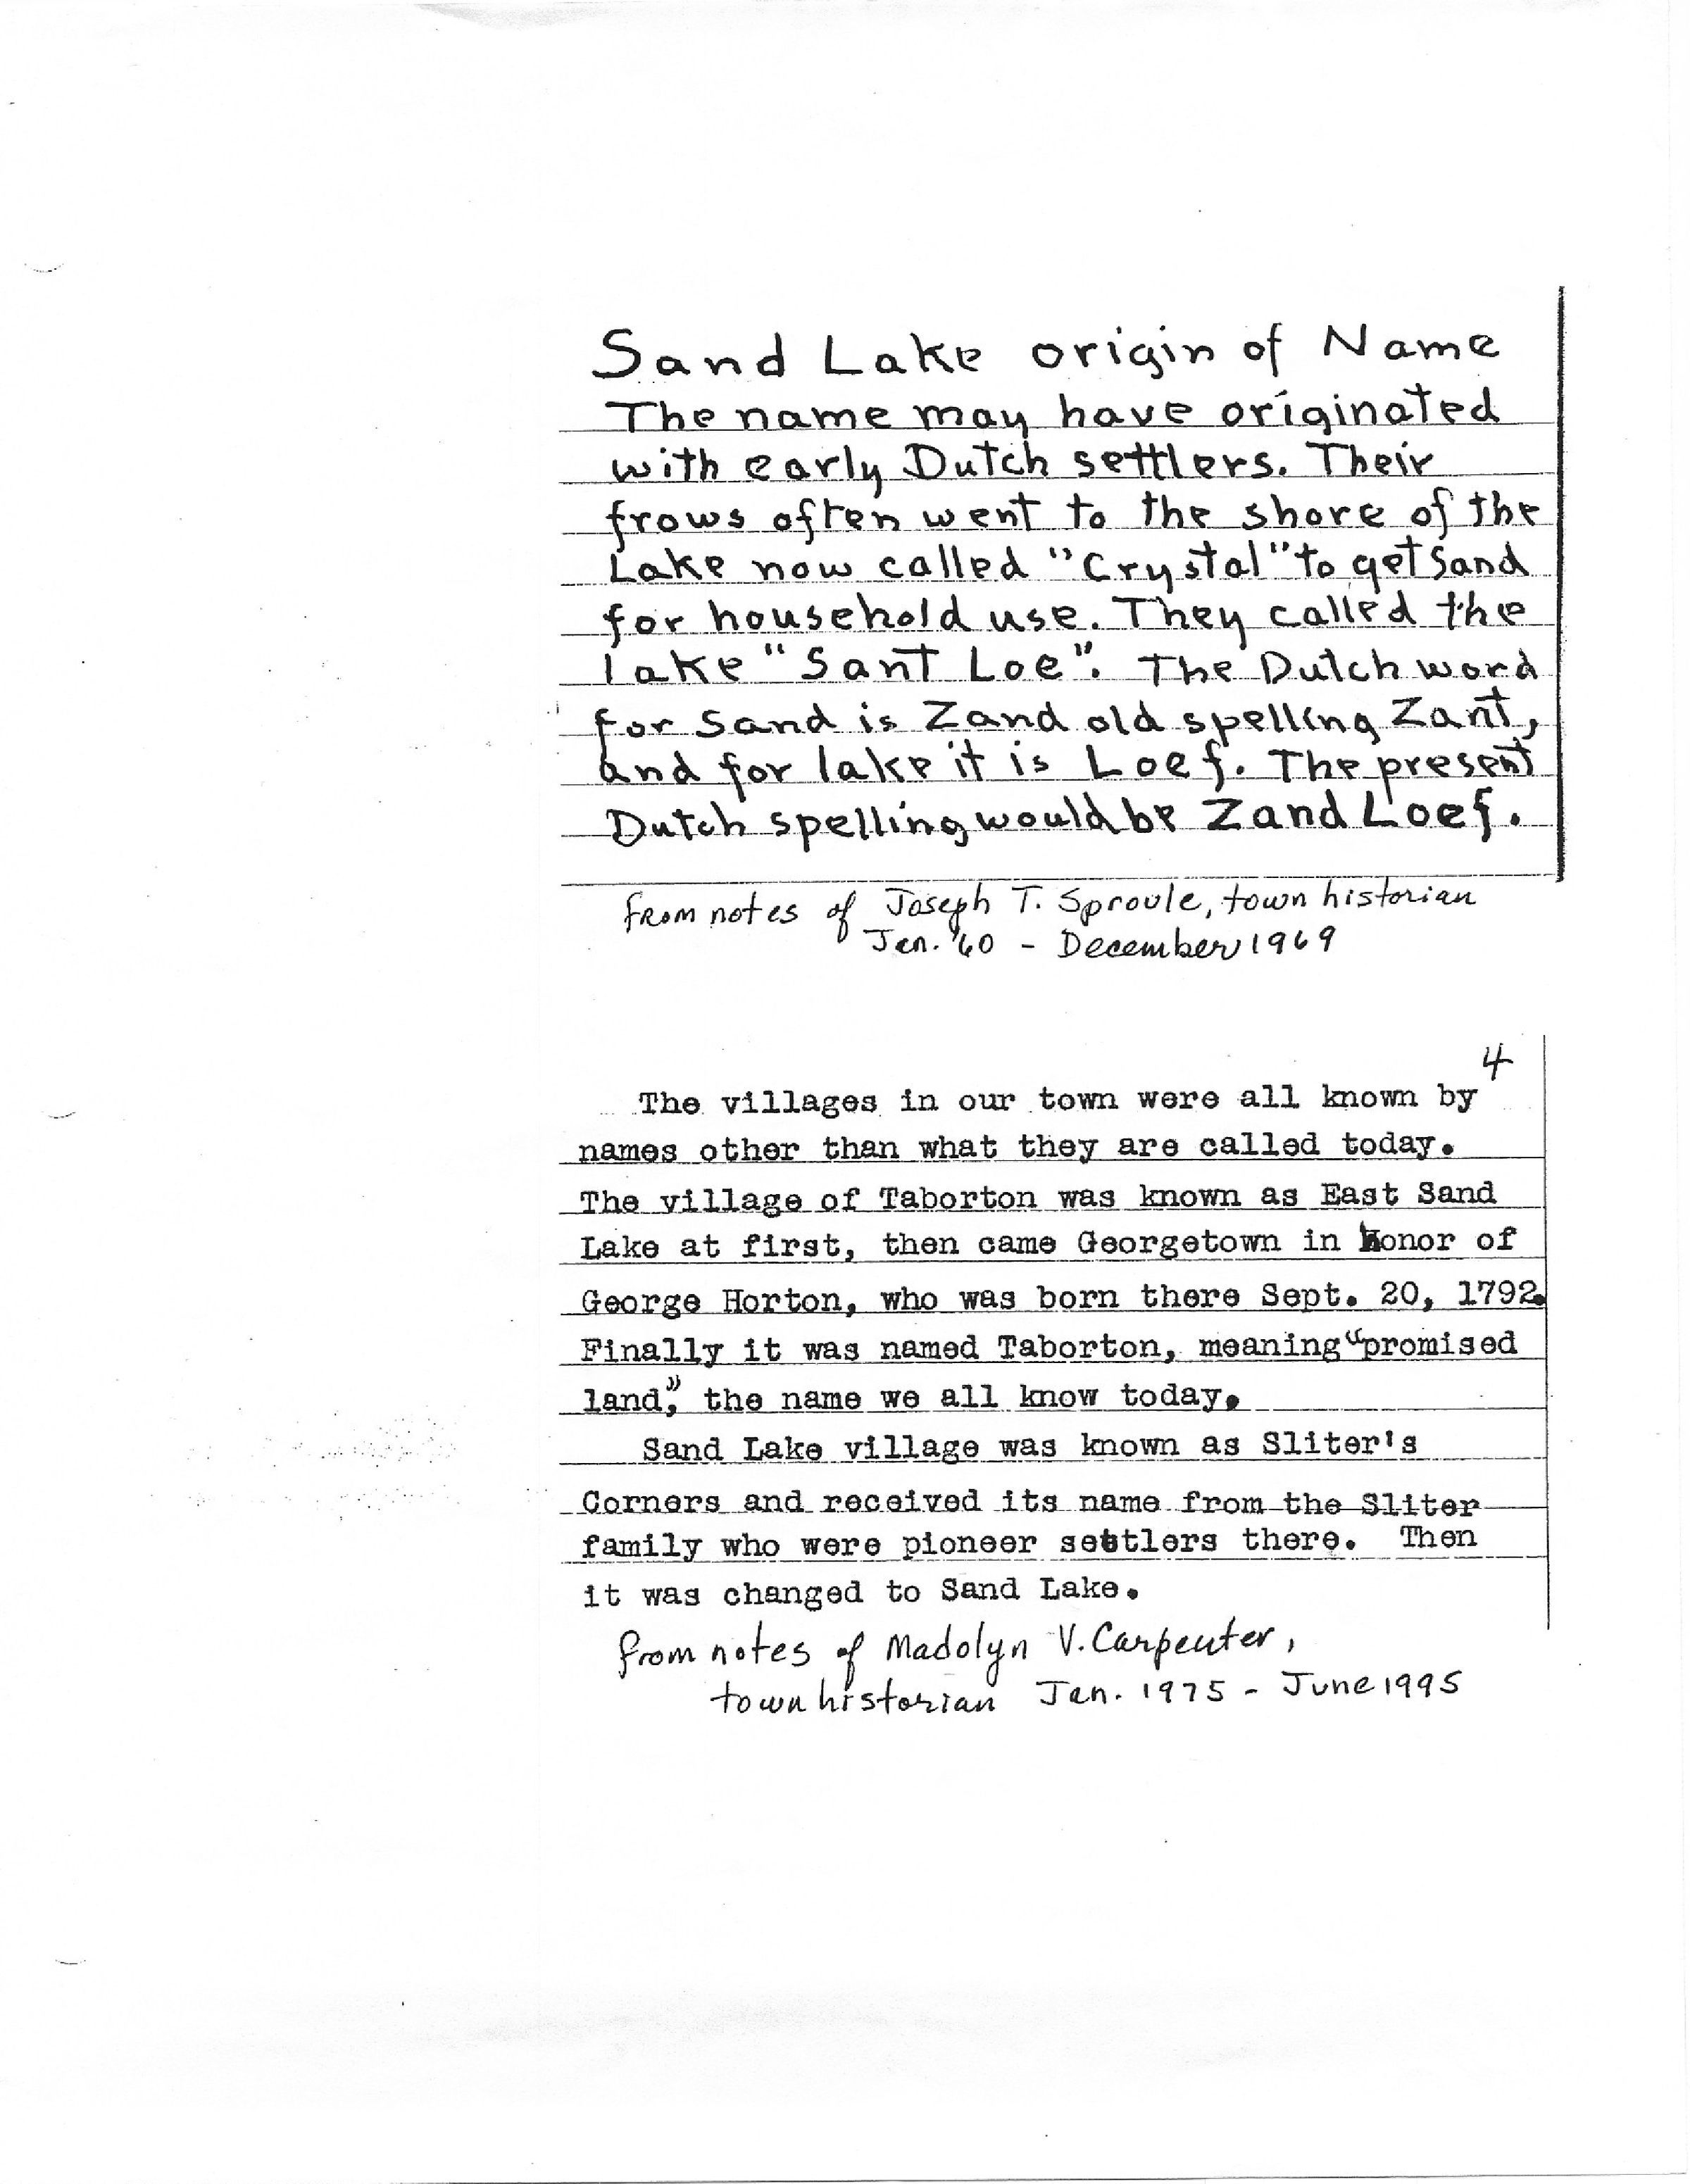 Sand Lake origin of Name
The name may have originated
with early Dutch settlers. Their
frows often went to the shore of the
Lake now called "Crystal" to get sand
for household use. They called the
lake "Sant Loe". The Dutch word
for sand is Zand old spelling Zant,
and for lake it is Loef. The present
Dutch spelling would be Zand Loef.
from notes of Joseph T. Sproule, town historian
Jan. '60 - December 1969
4
The villages in our town were all known by
names other than what they are called today.
The village of Taborton was known as East Sand
Lake at first, then came Georgetown in honor of
George Horton, who was born there Sept. 20, 1792.
Finally it was named Taborton, meaning "promised
land", the name we all know today.
Sand Lake village was known as Sliter's
Corners and received its name from the Sliter
family who were pioneer settlers there. Then
it was changed to Sand Lake.
from notes of Madolyn V. Carpenter,
town historian Jan. 1975 - June 1995